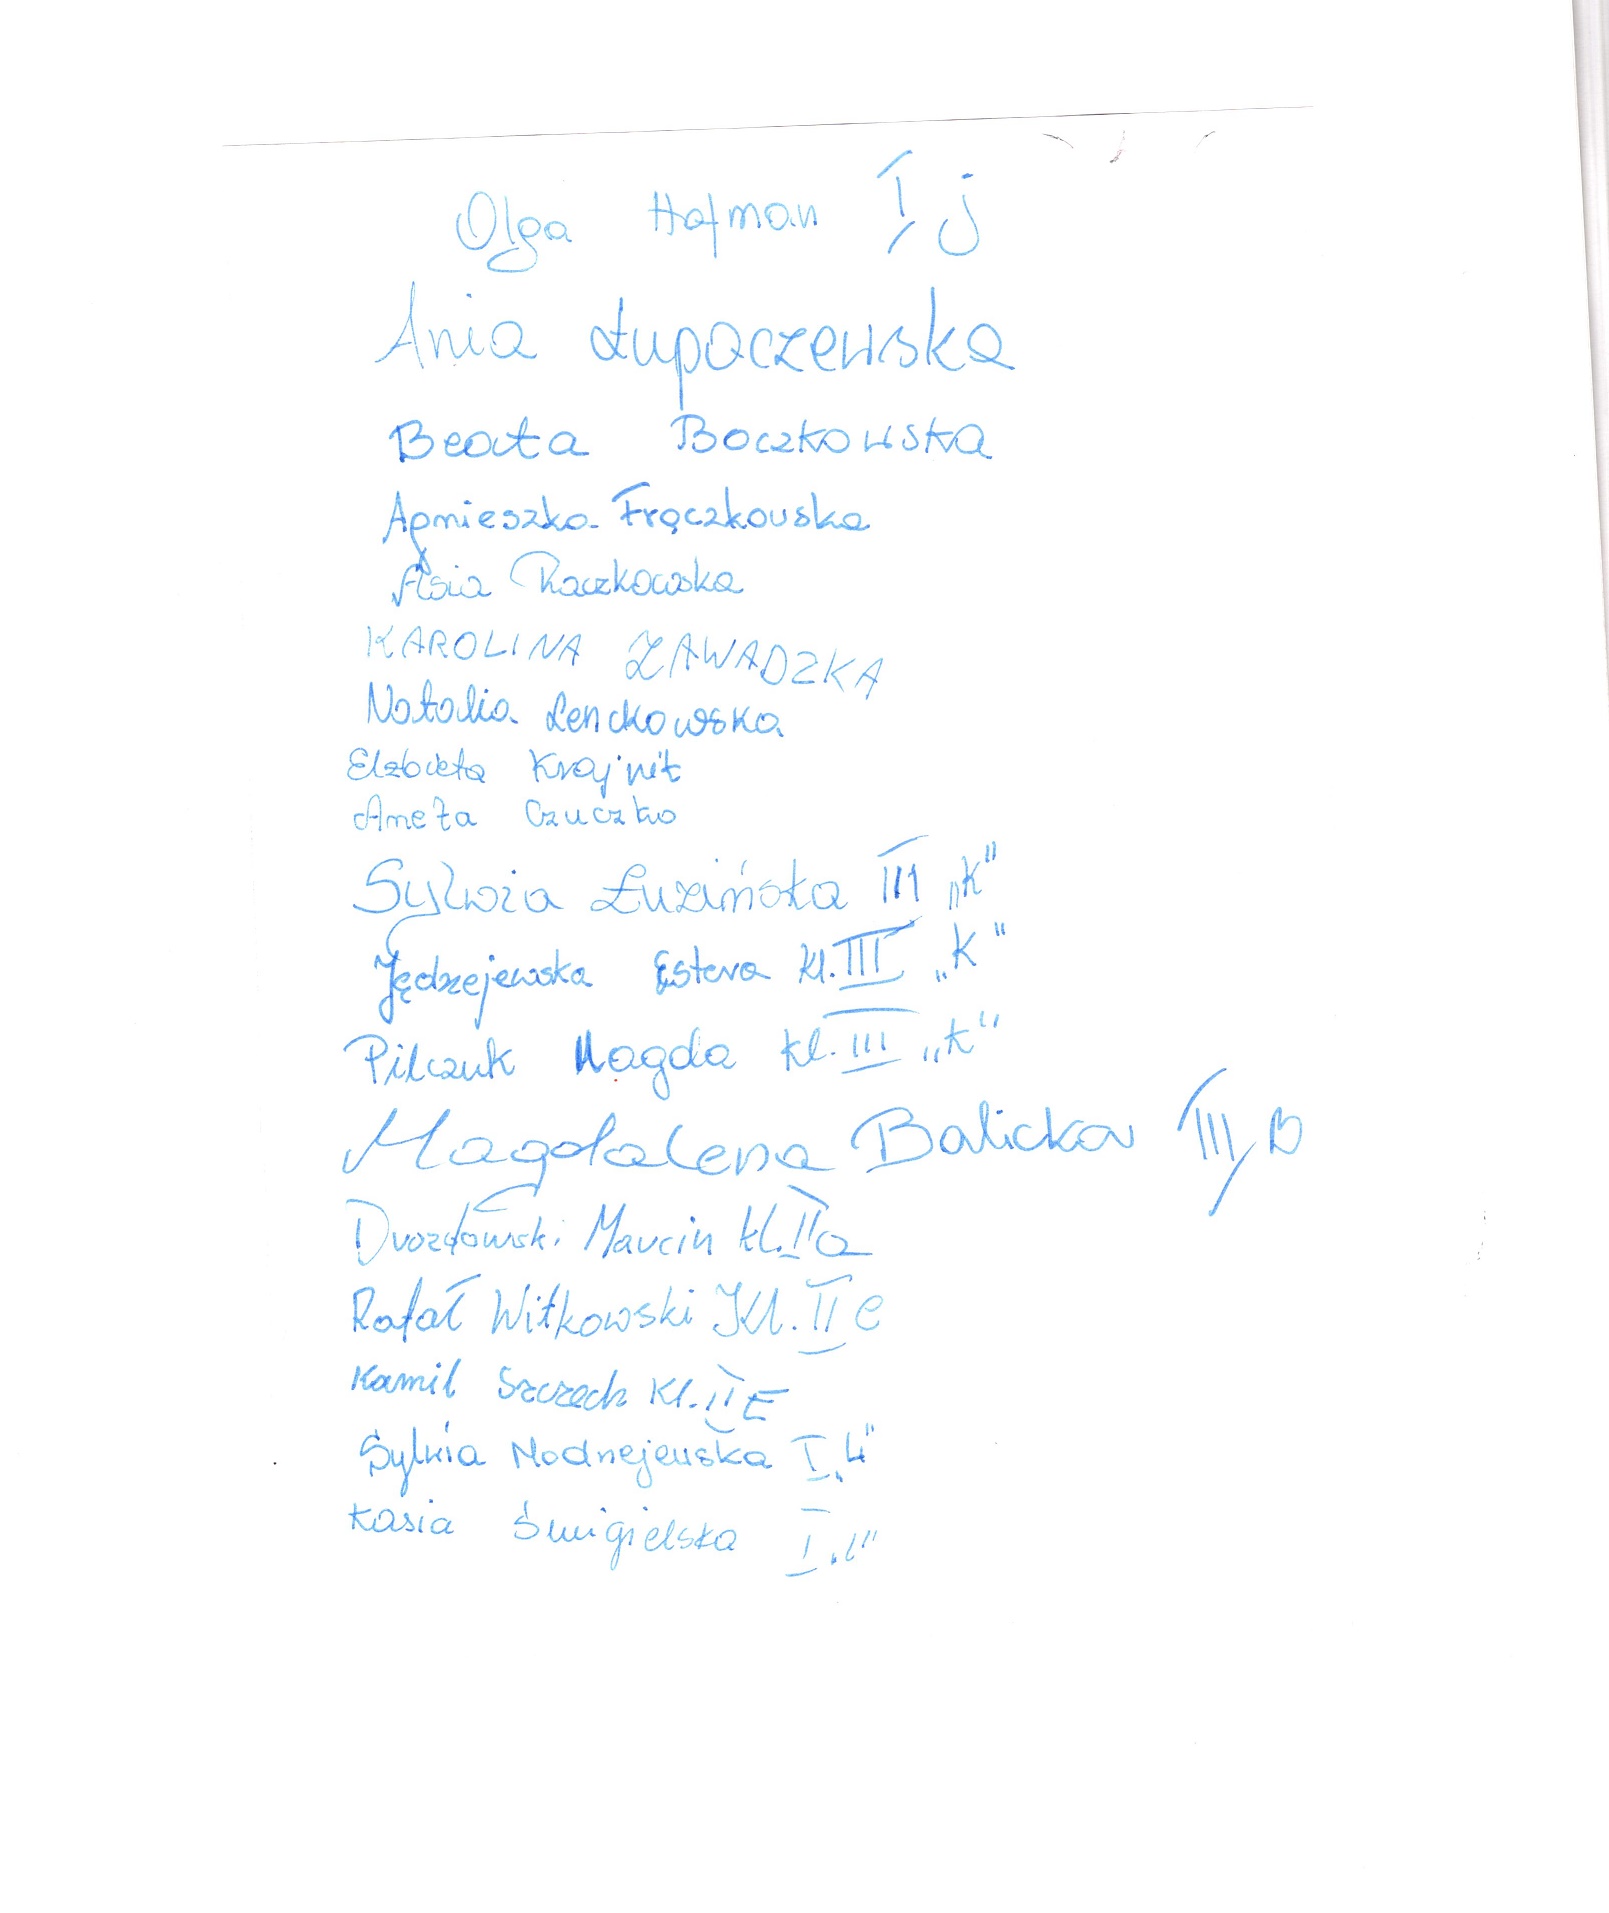 Olga Hofman I j
Ania Łupaczewska
Beata Boczkowska
Agnieszka Frączkowska
Asia Raczkowska
KAROLINA ZAWADZKA
Natalia Lenckowska
Elżbieta Krajnik
Aneta Czuczko
Sylwia Łuzińska III „K”
Jędrzejewska Estera kl. III „K”
Pilczuk Magda kl. III „K”
Magdalena Balicka III B
Drozdowski Marcin kl. II a
Rafał Witkowski Kl. II C
Kamil Szczech Kl. II E
Sylwia Modrzejewska I „L”
Kasia Śmigielska I „L”